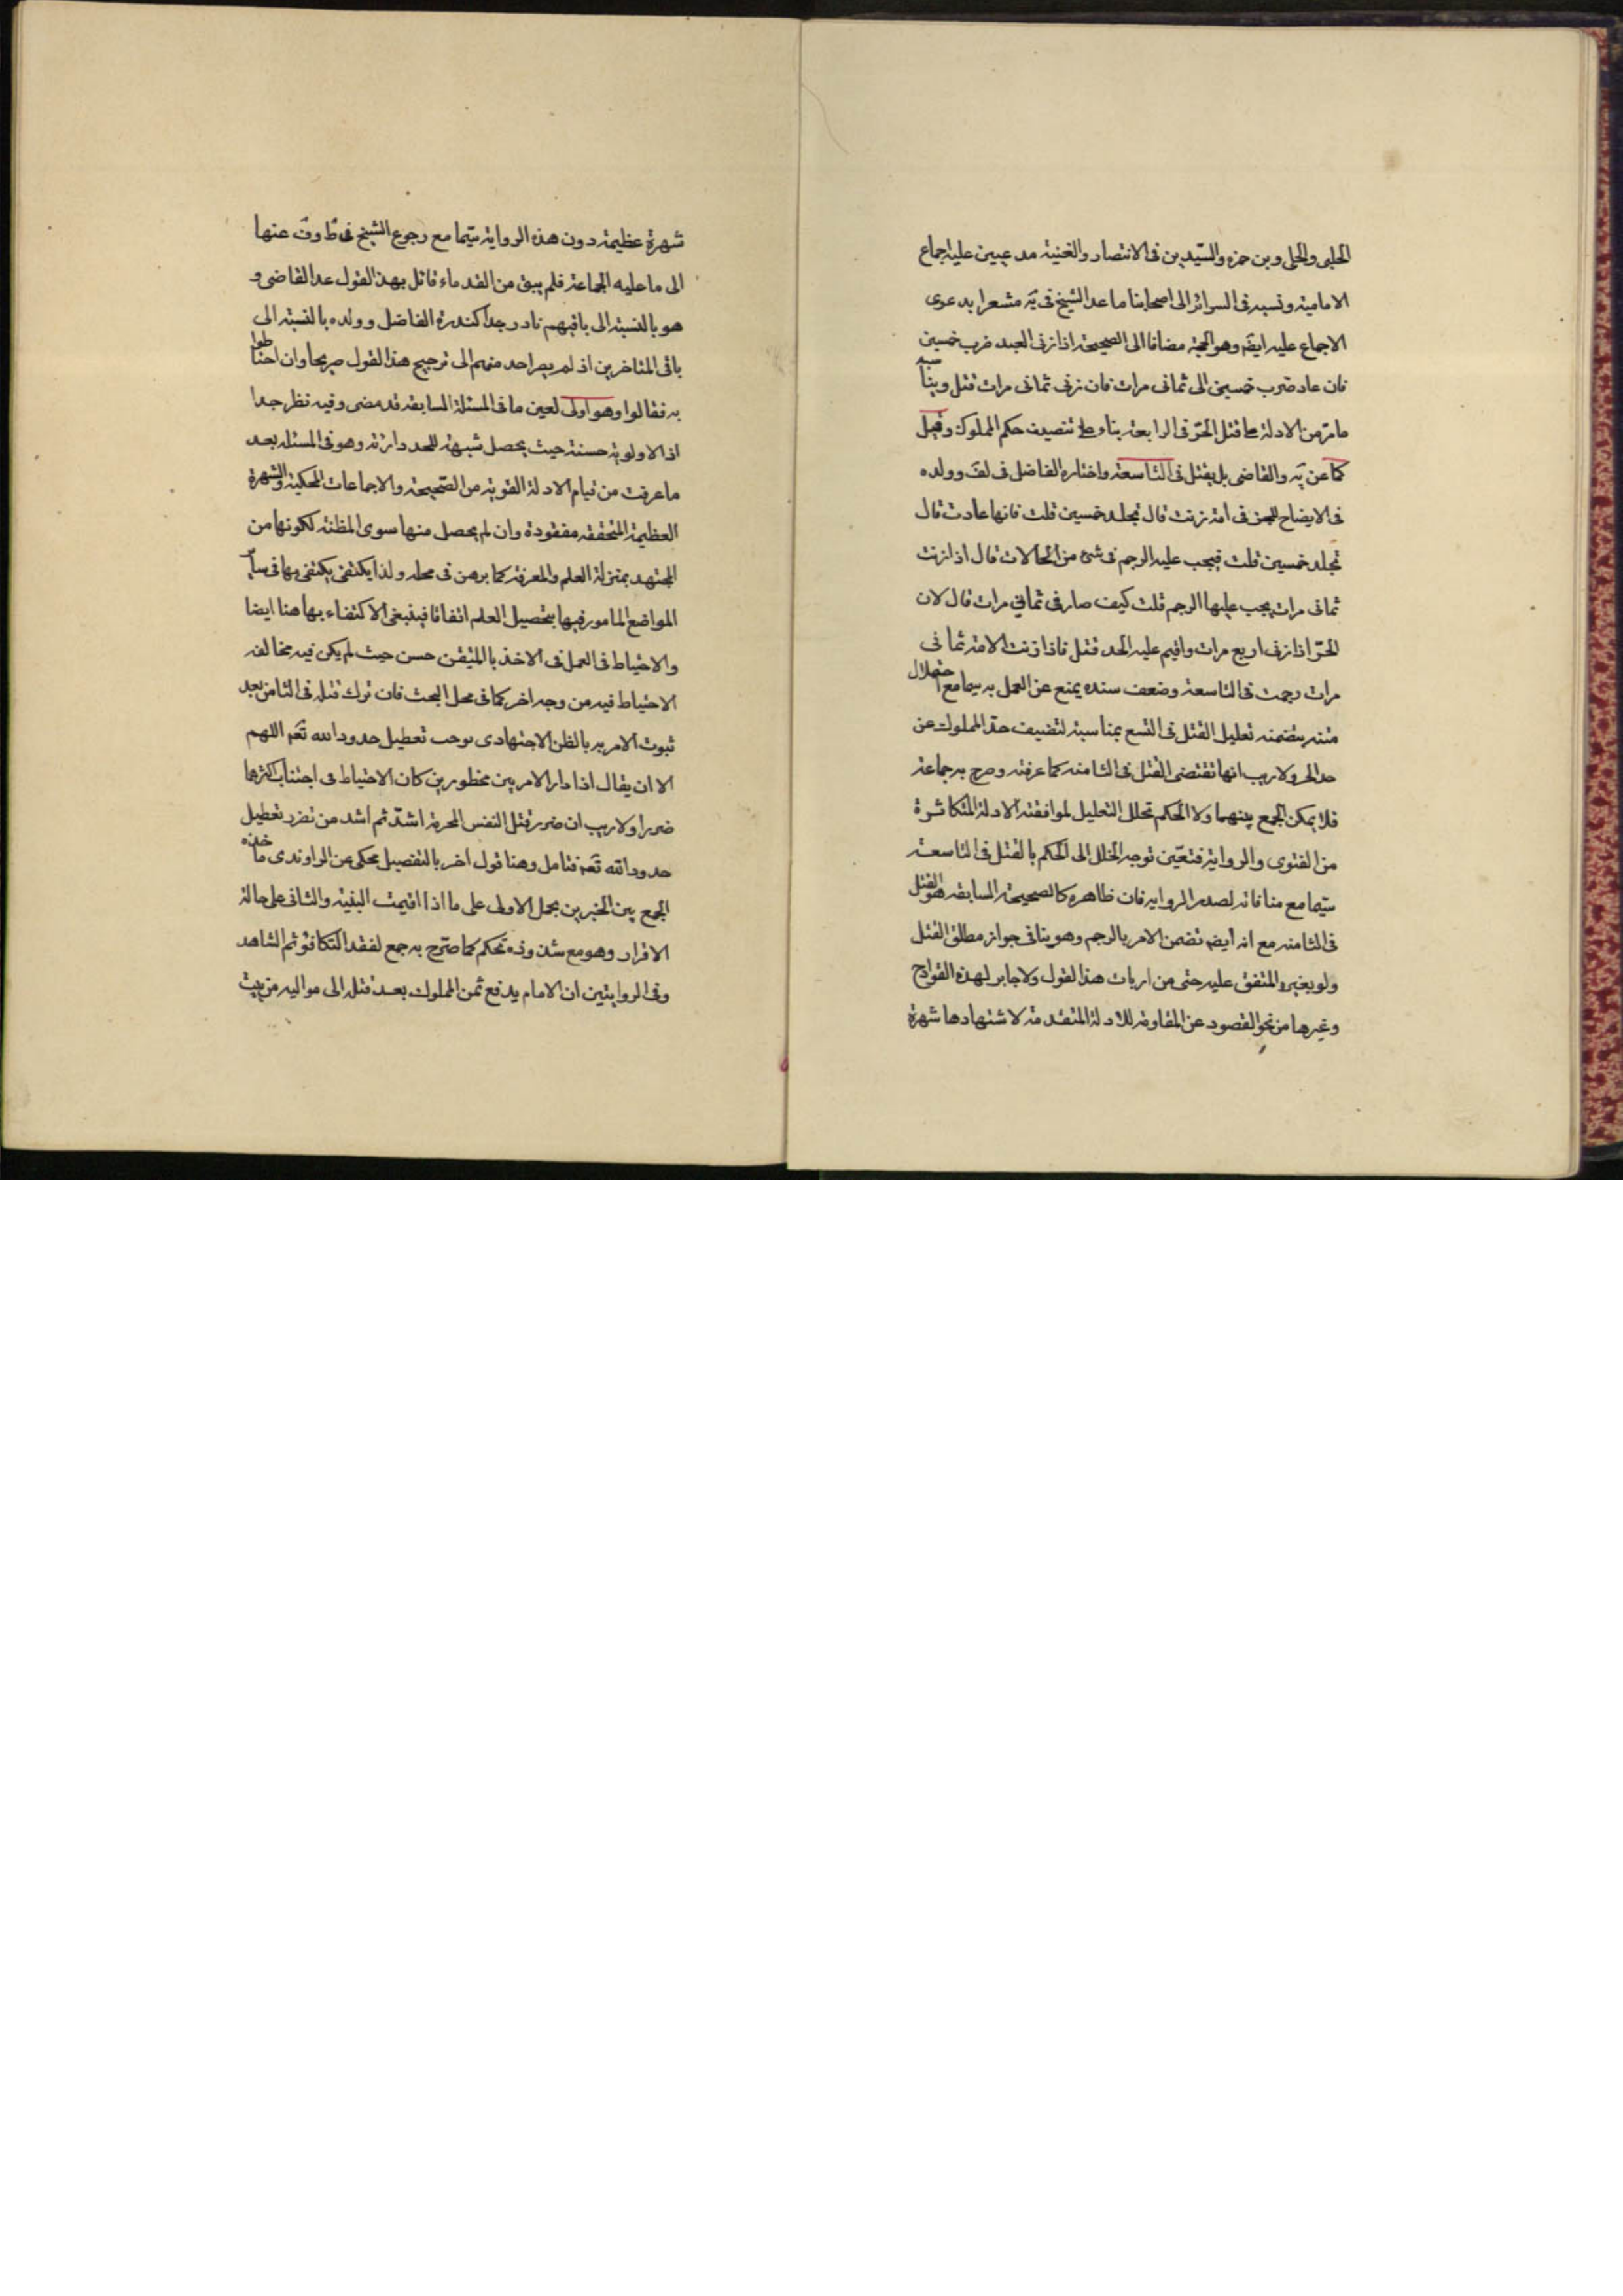 الحلبى والحلى وبن حمزه والسّيدين فى الانتصار والغنية مدعيين عليه اجماع
الامامية ونسبه فى السرائر الى اصحابنا ما عدا الشيخ فى يَه مشعرا بدعوى
الاجماع عليه ايضَ وهو الحجة مضافا الى الصحيحة اذا زنى العبد ضرب خمسين
فان عاد ضرب خمسين الى ثمانى مرات فان زنى ثمانى مرات قتل ويناسبه
ما مرّ من الادلة على قتل الحرّ فى الرابعة بناء على تنصيف حكم المملوك وقيل
كما عن يَه والقاضى بل يقتل فى التاسعة واختاره الفاضل فى لف وولده
فى الايضاح للخبر فى امة زنت قال تجلد خمسين قلت فانها عادت قال
تجلد خمسين قلت فيجب عليه الرجم فى شئ من الحالات قال اذا زنت
ثمانى مرات يجب عليها الرجم قلت كيف صار فى ثمانى مرات قال لان
الحرّ اذا زنى اربع مرات واقيم عليه الحد قتل فاذا زنت الامة ثمانى
مرات رجمت فى التاسعة وضعف سنده يمنع عن العمل به سيما مع اختلال
متنه بتضمنه تعليل القتل فى التسع بمناسبة لتضيف حدّ المملوك عن
حد الحر ولا ريب انها تقتضى القتل فى الثامنه كما عرفته وصرح به جماعة
فلا يمكن الجمع بينهما ولا الحكم تحلل التعليل لموافقته الادلة المتكاثرة
من الفتوى والرواية فتعيّن توجه الخلل الى الحكم بالقتل فى التاسعة
سيّما مع منافاته لصدر الروايه فان ظاهره كالصحيحة السابقه هو القتل
فى الثامنه مع انه ايضَ تضمن الامر بالرجم وهو ينافى جواز مطلق القتل
ولو بغيره المتفق عليه حتى من ارباب هذا القول ولا جابر لهذه القوادح
وغيرها من نحو القصور عن المقاومة للادلة المتقدمة لاشتهارها شهرة
شهرة عظيمة دون هذه الرواية سيّما مع رجوع الشيخ فى ط وف عنها
الى ما عليه الجماعة فلم يبق من القدماء قائل بهذا القول عدا القاضى و
هو بالنسبة الى باقيهم نادر جدا كندرة الفاضل وولده بالنسبة الى
باقى المتاخرين اذ لم يصر احد منهم الى ترجيح هذا القول صريحا وان احتاطوا
به فقالوا وهو اولى لعين ما فى المسئلة السابقه قد مضى وفيه نظر جدا
اذ الاولوية حسنة حيث يحصل شبهة للحد دارئة وهو فى المسئلة بعد
ما عرفت من قيام الادلة القوية من الصّحيحة والاجماعات المحكية والشهرة
العظيمة المتحققه مفقودة وان لم يحصل منها سوى المظنة لكونها من
المجتهد بمنزلة العلم والمعرفة كما برهن فى محله ولذا يكتفى يكتفى بها فى ساير
المواضع المامور فيها بتحصيل العلم اتفاقا فينبغى الاكتفاء بها هنا ايضا
والاحتياط فى العمل فى الاخذ بالمتيقن حسن حيث لم يكن فيه مخالفه
الاحتياط فيه من وجه اخر كما فى محل البحث فان ترك قتله فى الثامن بعد
ثبوت الامر به بالظن الاجتهادى يوجب تعطيل حدود الله تعَم اللهم
الا ان يقال اذا دار الامر بين محظورين كان الاحتياط فى اجتناب اكثرهما
ضررا ولا ريب ان ضرر قتل النفس المحرمة اشدّ ثم اشد من تضرر تعطيل
حدود الله تعَم فتامل وهنا قول اخر بالتفصيل محكى عن الراوندى ماخذه
الجمع بين الخبرين بحمل الاولى على ما اذا اقيمت البنية والثانى على حالة
الاقرار وهو مع شذوذه تحكم كما صرّح به جمع لفقد التكافؤ ثم الشاهد
وفى الروايتين ان الامام يدفع ثمن المملوك بعد قتله الى مواليه من بيت